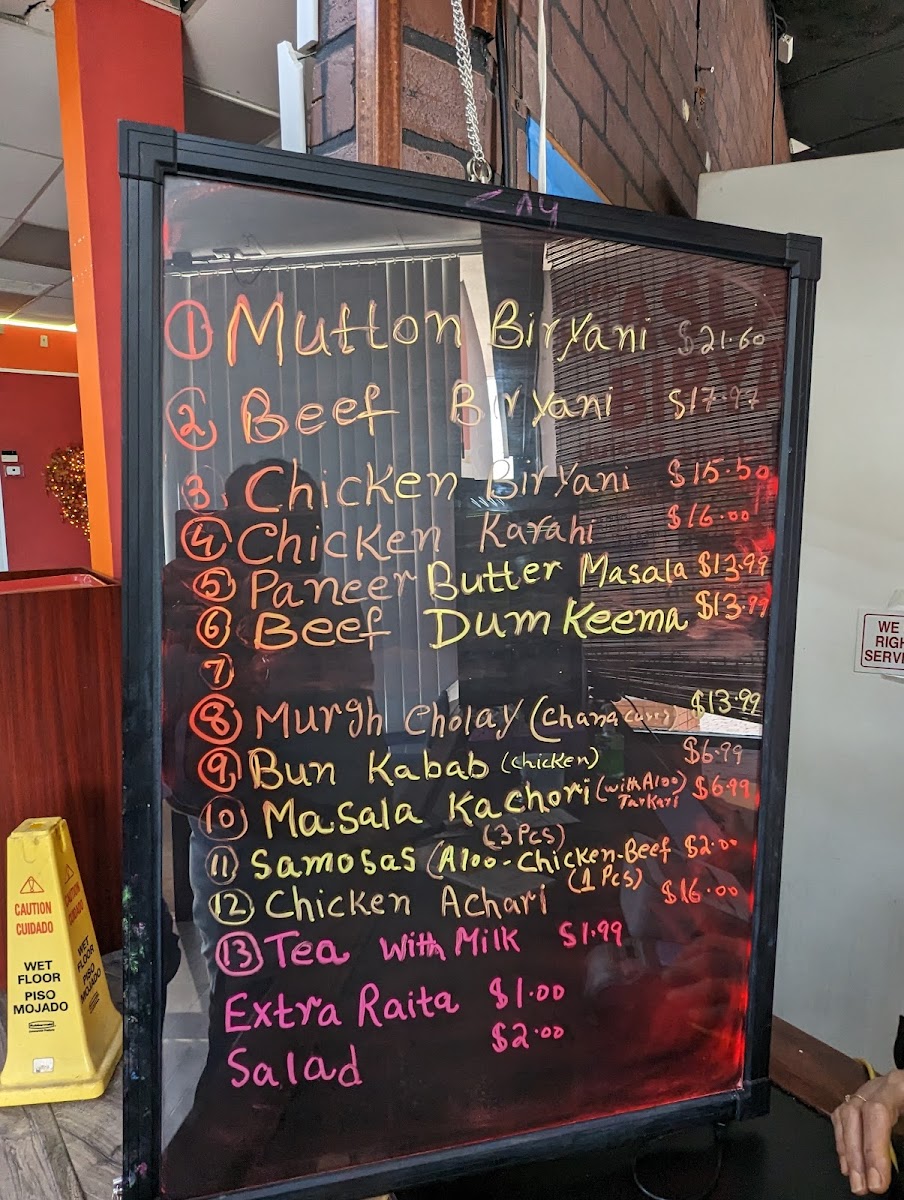 1 Mutton Biryani $21.60
2 Beef Biryani $17.97
3 Chicken Biryani $15.50
4 Chicken Karahi $16.00
5 Paneer Butter Masala $13.99
6 Beef Dum Keema $13.99
7
8 Murgh Cholay (Chana curry) $13.99
9 Bun Kabab (chicken) $6.99
10 Masala Kachori (with Aloo Tarkari) $6.99
(3 Pcs)
11 Samosas (Aloo-Chicken-Beef $2.00
(1 Pcs)
12 Chicken Achari $16.00
13 Tea with Milk $1.99
Extra Raita $1.00
Salad $2.00
CAUTION
CUIDADO
WET
FLOOR
PISO
MOJADO
WET
FLOOR
PISO
MOJADO
WE
RIGH
SERVI